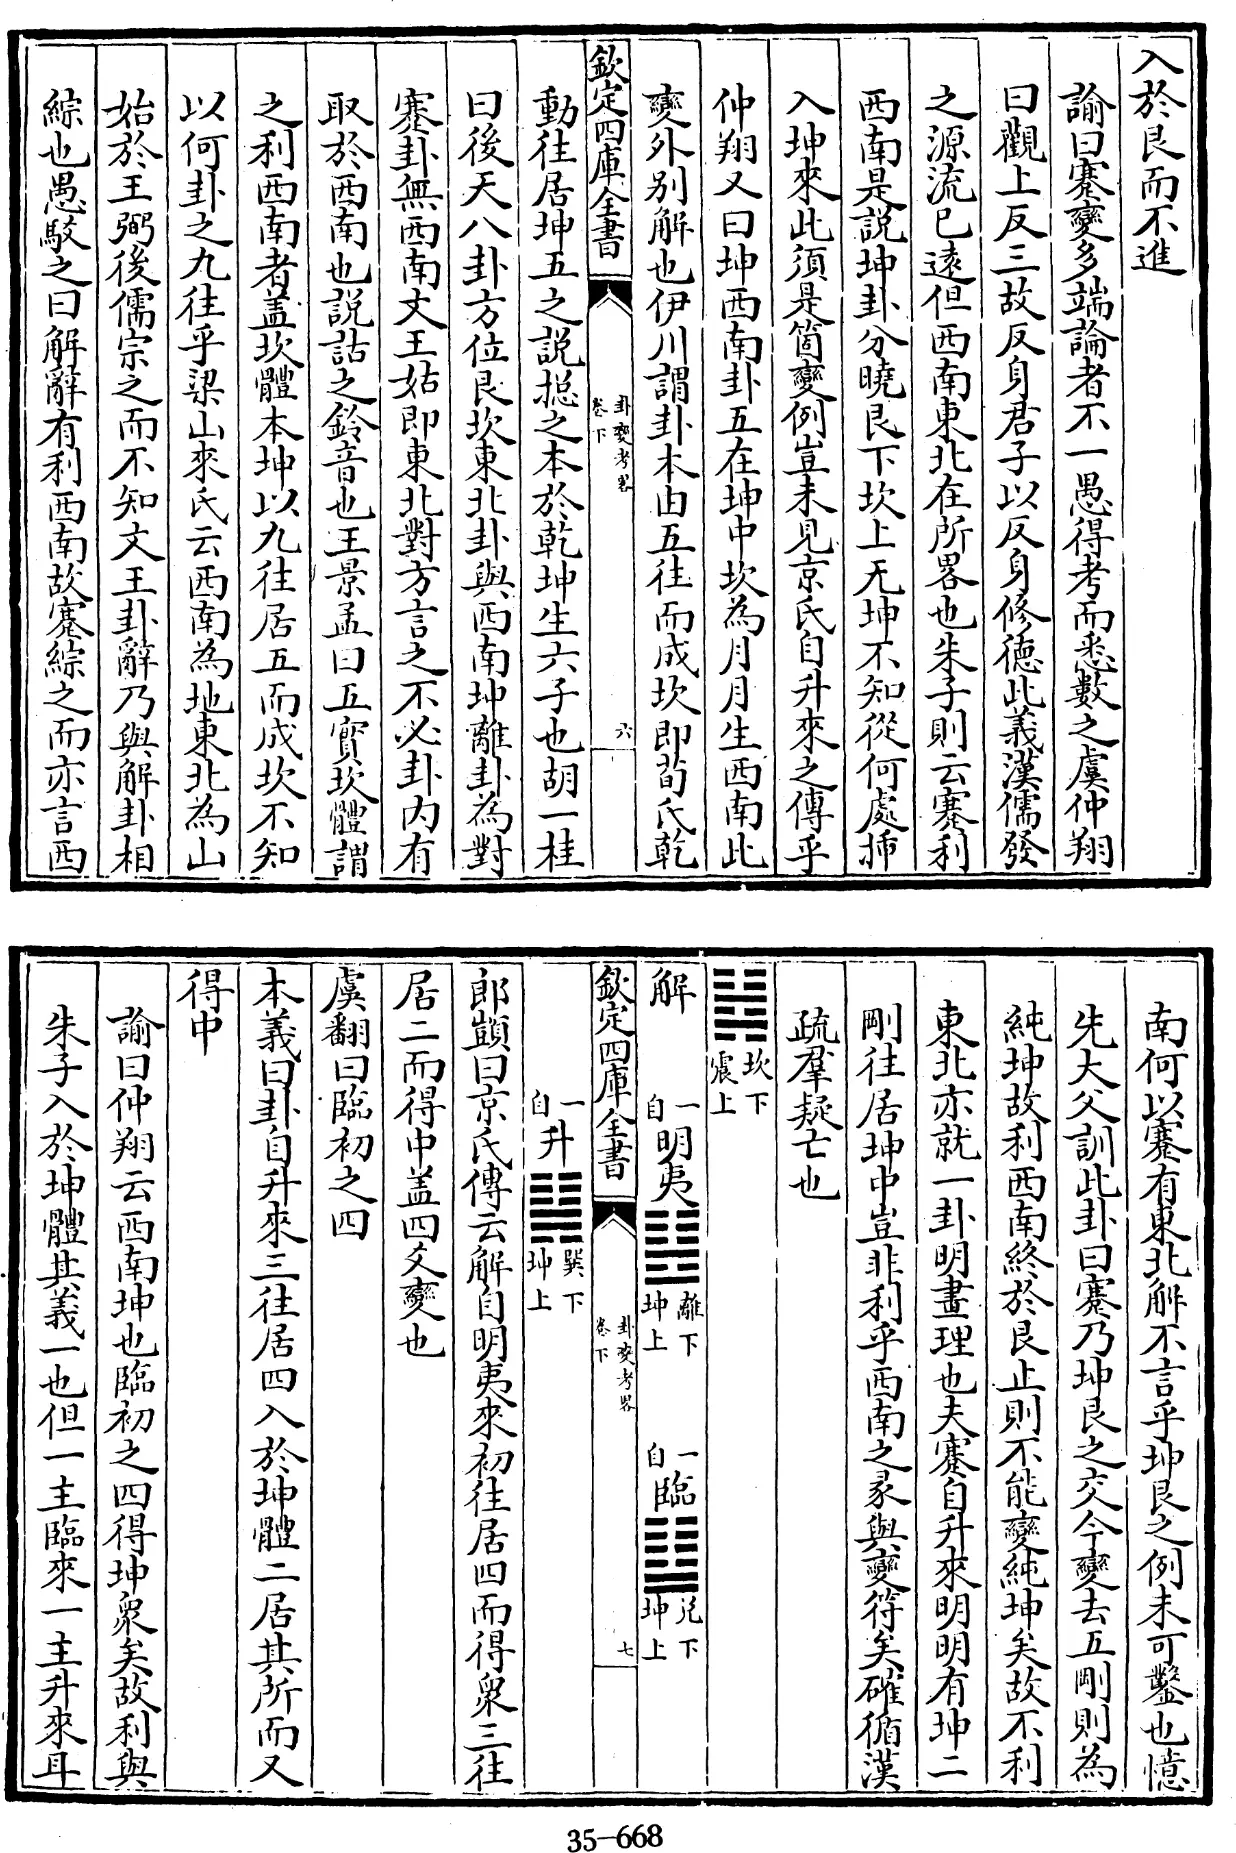 入於艮而不進
諭曰蹇變多端論者不一愚得考而悉數之虞仲翔
曰觀上反三故反身君子以反身修德此義漢儒發
之源流已遠但西南東北在所畧也朱子則云蹇利
西南是説坤卦分曉艮下坎上无坤不知從何處揷
入坤來此須是箇變例豈未見京氏自升來之傳乎
仲翔又曰坤西南卦五在坤中坎為月月生西南此
變外别解也伊川謂卦本由五往而成坎即荀氏乾
欽定四庫全書
卦變考畧
卷下
六
動往居坤五之説揔之本於乾坤生六子也胡一桂
曰後天八卦方位艮坎東北卦與西南坤離卦為對
蹇卦無西南文王姑即東北對方言之不必卦内有
取於西南也説詁之鈴音也王景孟曰五實坎體謂
之利西南者蓋坎體本坤以九往居五而成坎不知
以何卦之九往乎梁山來氏云西南為地東北為山
始於王弼後儒宗之而不知文王卦辭乃與解卦相
綜也愚駁之曰解辭有利西南故蹇綜之而亦言西
南何以蹇有東北解不言乎坤艮之例未可鑿也憶
先大父訓此卦曰蹇乃坤艮之交今變去五剛則為
純坤故利西南終於艮止則不能變純坤矣故不利
東北亦就一卦明畫理也夫蹇自升來明明有坤二
剛往居坤中豈非利乎西南之彖與變符矣確循漢
疏羣疑亡也
䷧ 坎下
震上
解 一自明夷䷣ 離下
坤上 一自臨䷒ 兌下
坤上
欽定四庫全書
卦變考畧
卷下
七
一自升䷭ 巽下
坤上
郎顗曰京氏傳云解自明夷來初往居四而得衆三往
居二而得中蓋四爻變也
虞翻曰臨初之四
本義曰卦自升來三往居四入於坤體二居其所而又
得中
諭曰仲翔云西南坤也臨初之四得坤衆矣故利與
朱子入於坤體其義一也但一主臨來一主升來耳
35-668